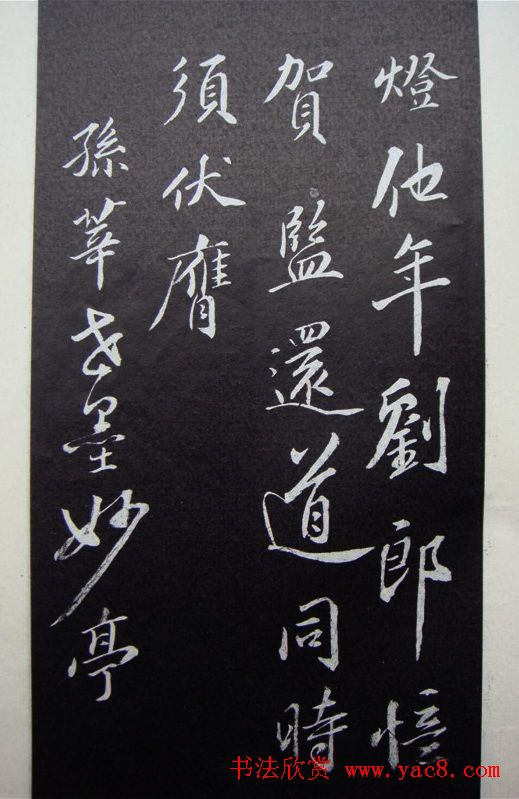 燈他年劉郎憶
賀監還道同時
須伏膺
孫莘老墨妙亭
书法欣赏 www.yac8.com